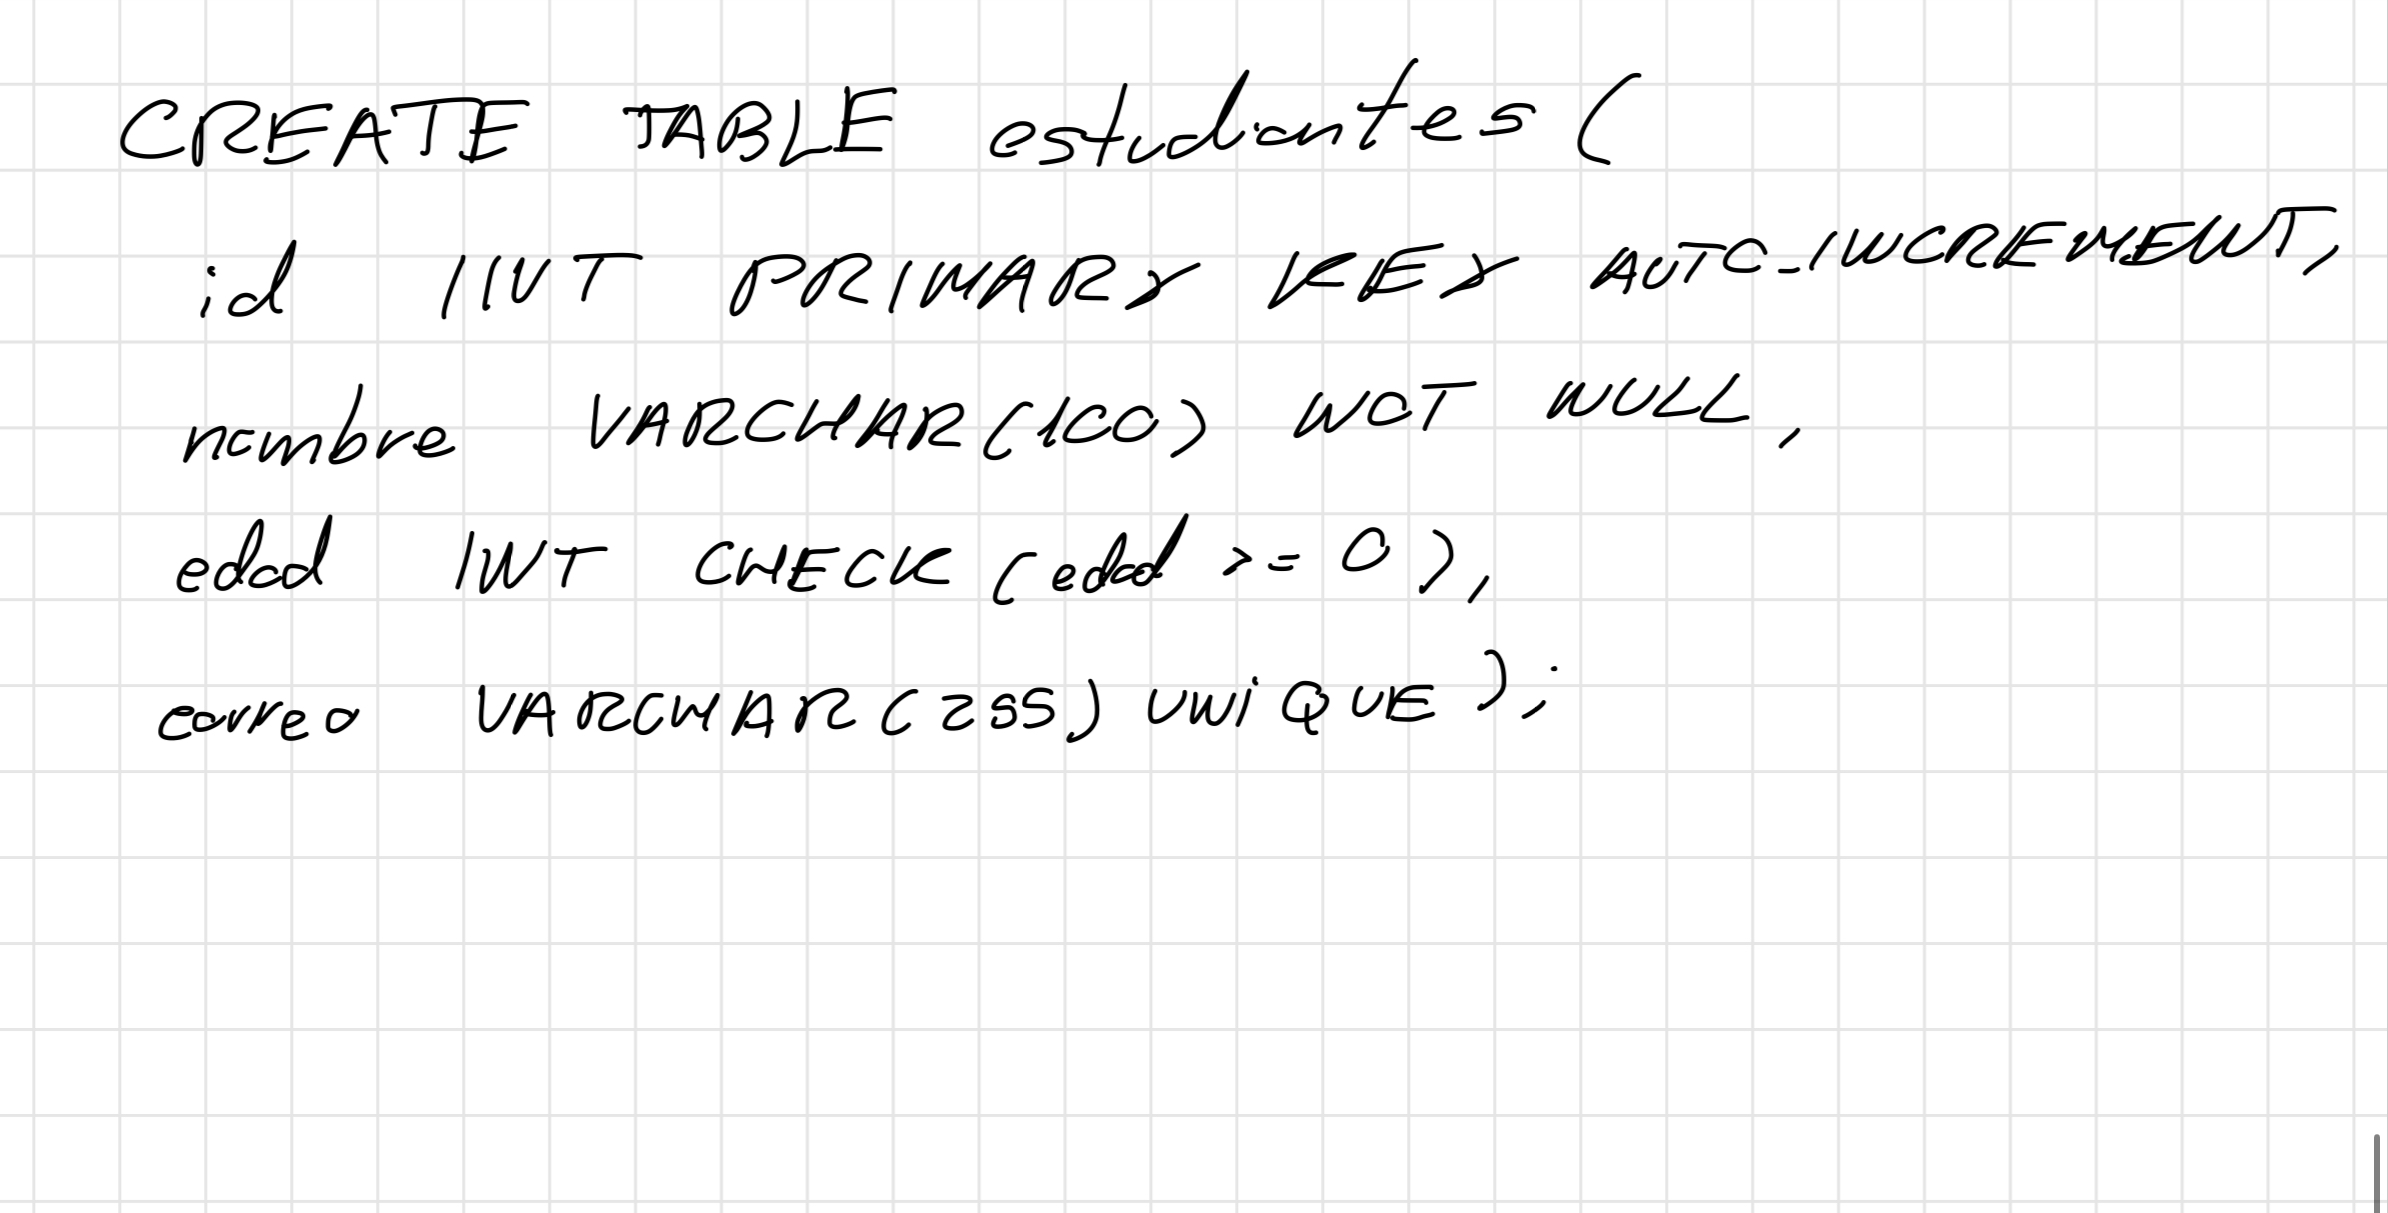 CREATE TABLE estudiantes (
id INT PRIMARY KEY AUTO_INCREMENT,
nombre VARCHAR(100) NOT NULL,
edad INT CHECK (edad >= 0),
correo VARCHAR(255) UNiQUE );